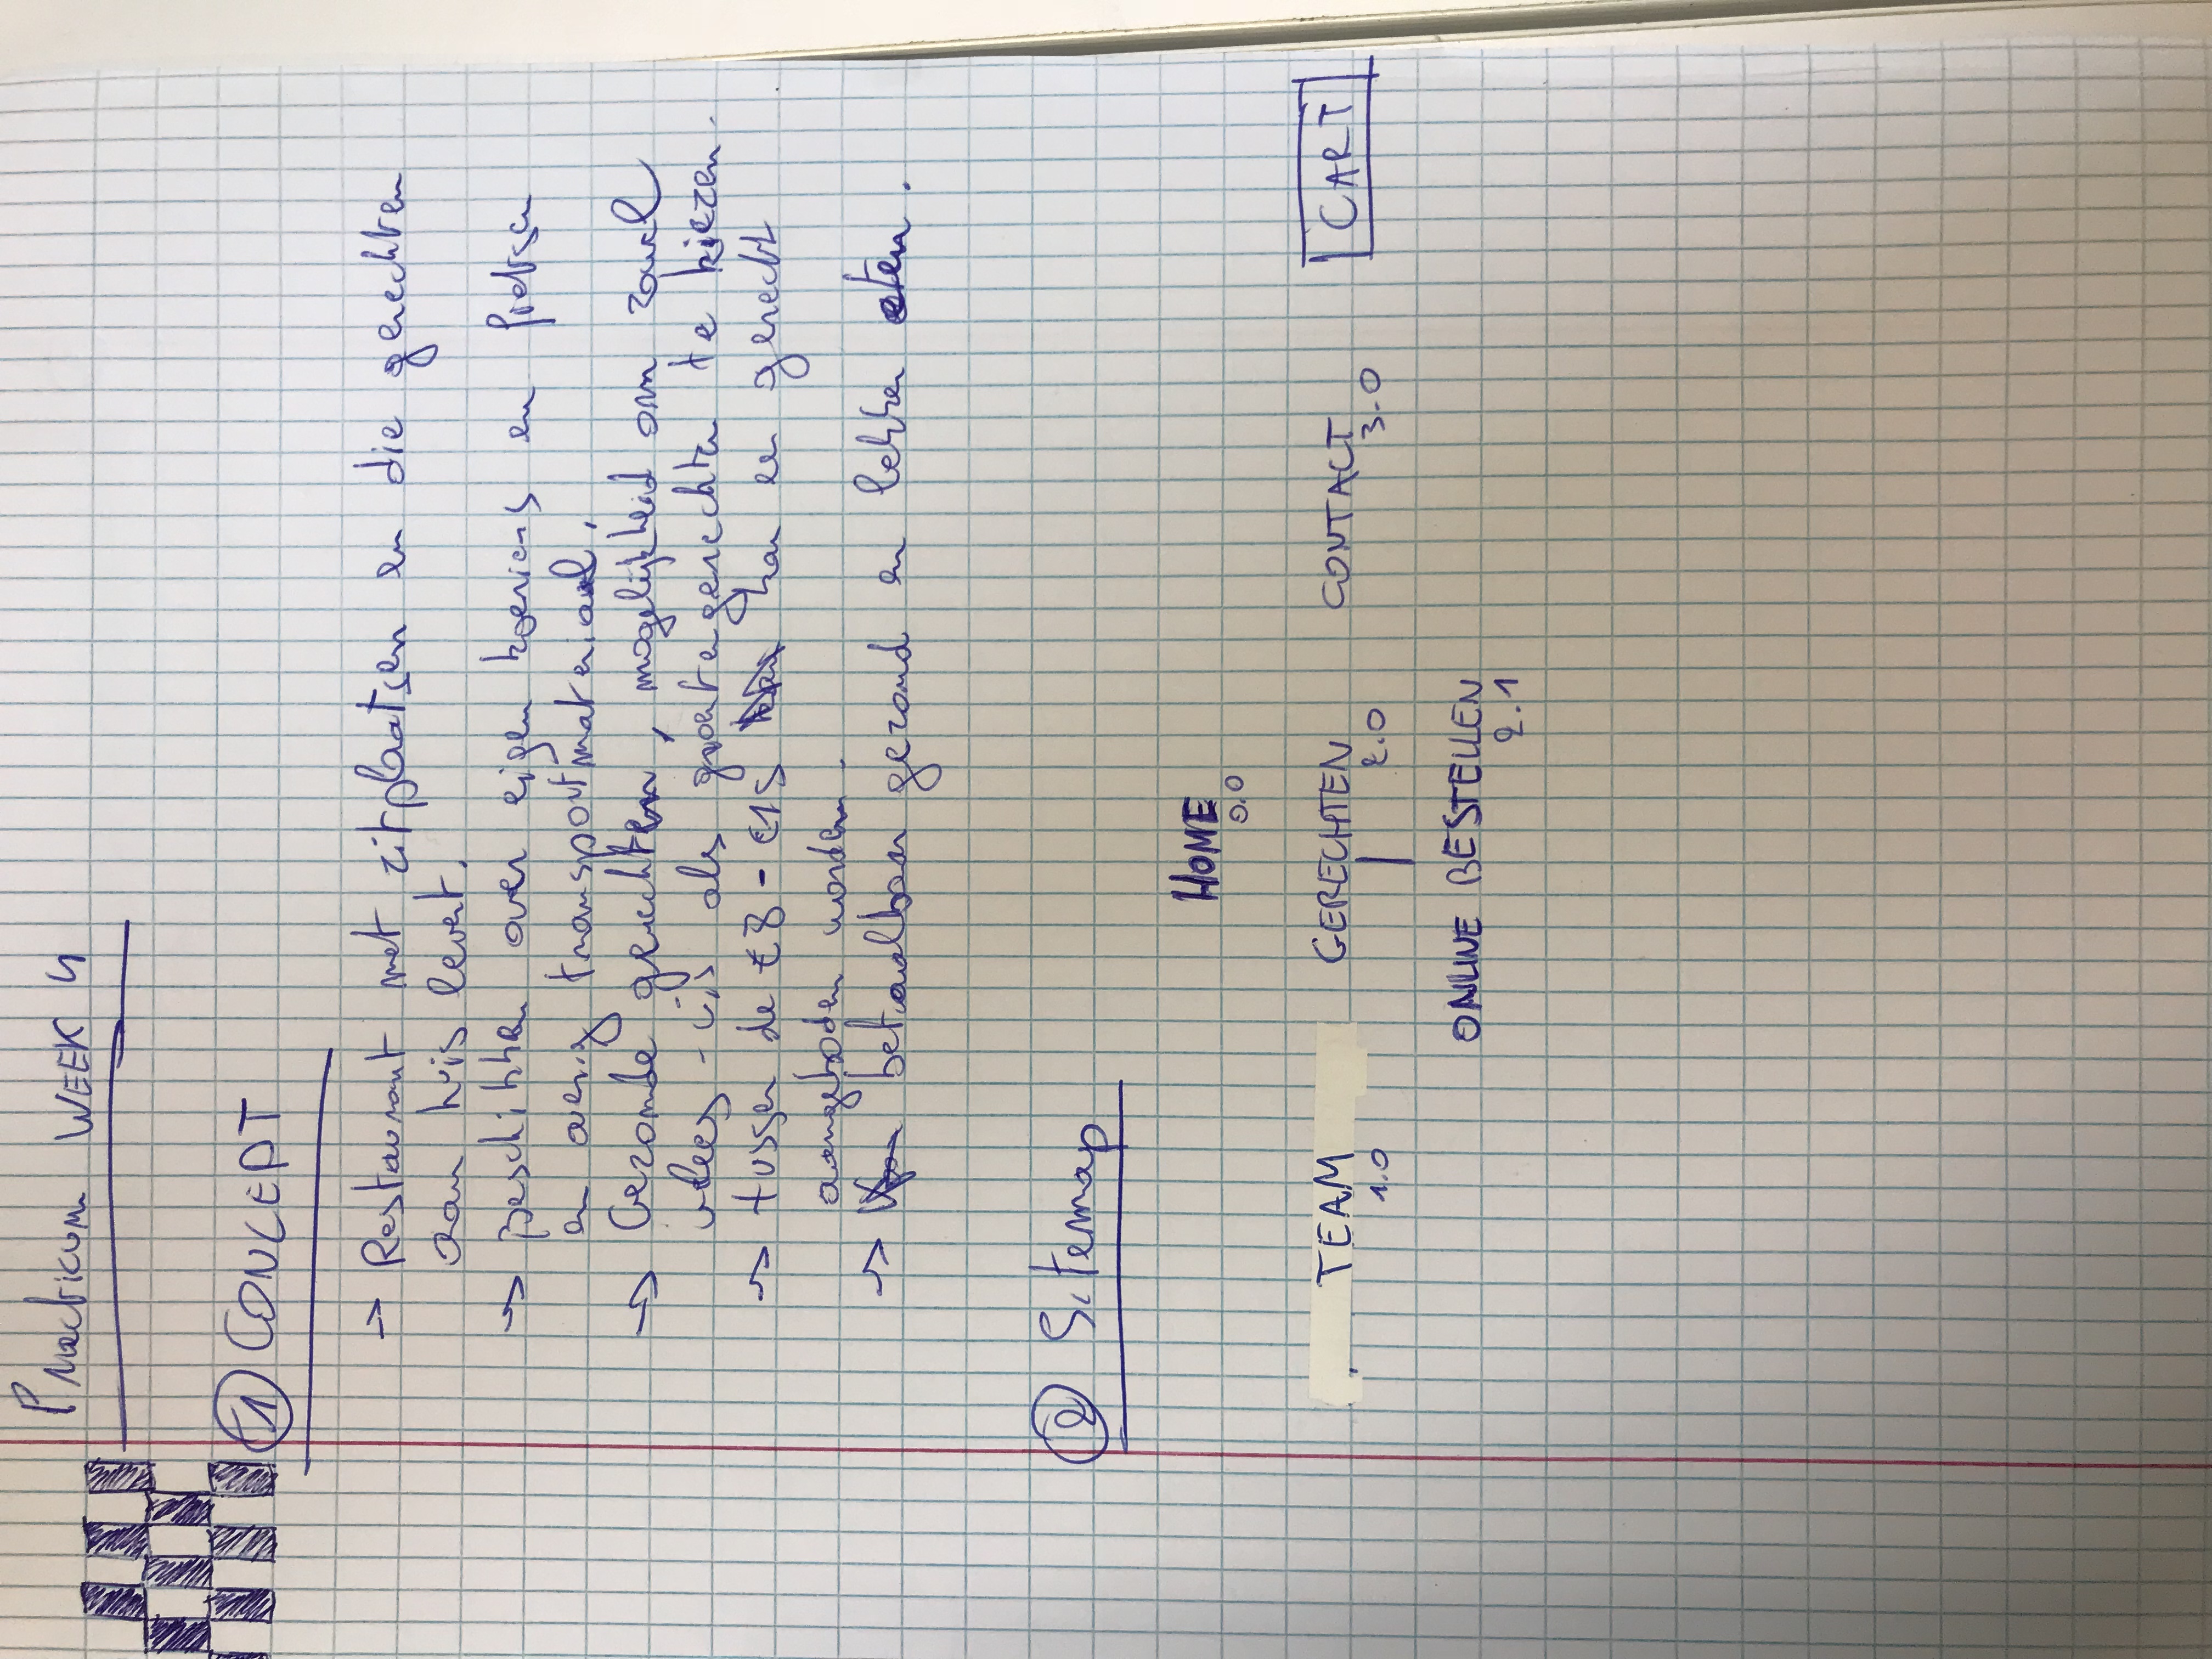 Practicum WEEK 4
1 CONCEPT
→ Restaurant met zitplaatsen en die gerechten
aan huis levert.
→ Beschikken over eigen koeriers en fietsen
en overig transportmateriaal.
→ Gezonde gerechten, mogelijkheid om zowel
vlees - vis als groentengerechten te kiezen.
→ tussen de €8 - €15 kan een gerecht
aangeboden worden.
→ betaalbaar gezond en lekker eten.
2 Sitemap
HOME
0.0
TEAM GERECHTEN CONTACT CART
1.0 2.0 3.0
ONLINE BESTELLEN
2.1